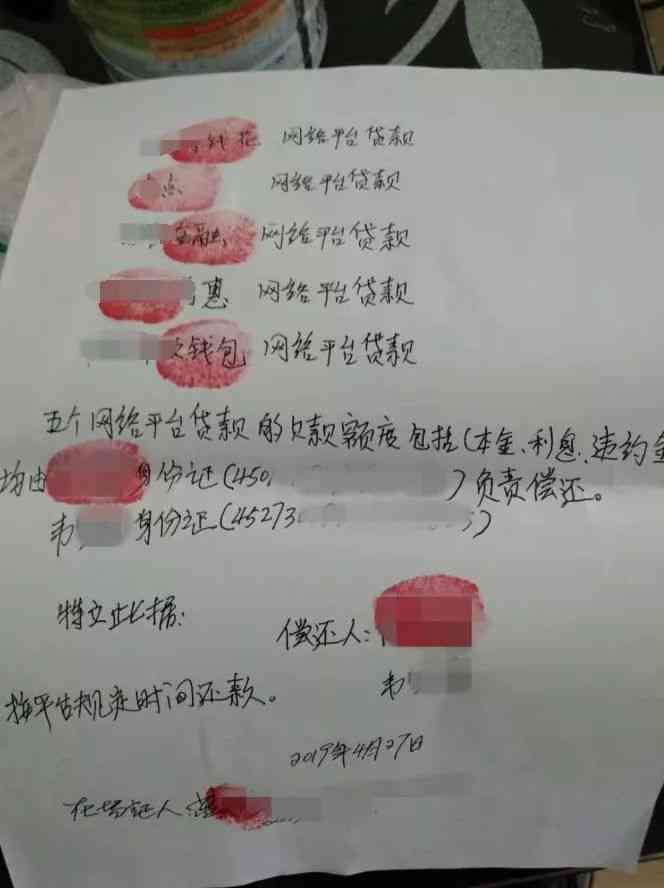 钱花 网络平台贷款
惠 网络平台贷款
金融 网络平台贷款
惠 网络平台贷款
钱包 网络平台贷款
五个网络平台贷款的欠款额度包括(本金、利息、违约金
均由 身份证(450 )负责偿还。
韦 身份证(45273 )
特立此据:
偿还人:
韦
按平台规定时间还款。
2019年4月27日
在场证人